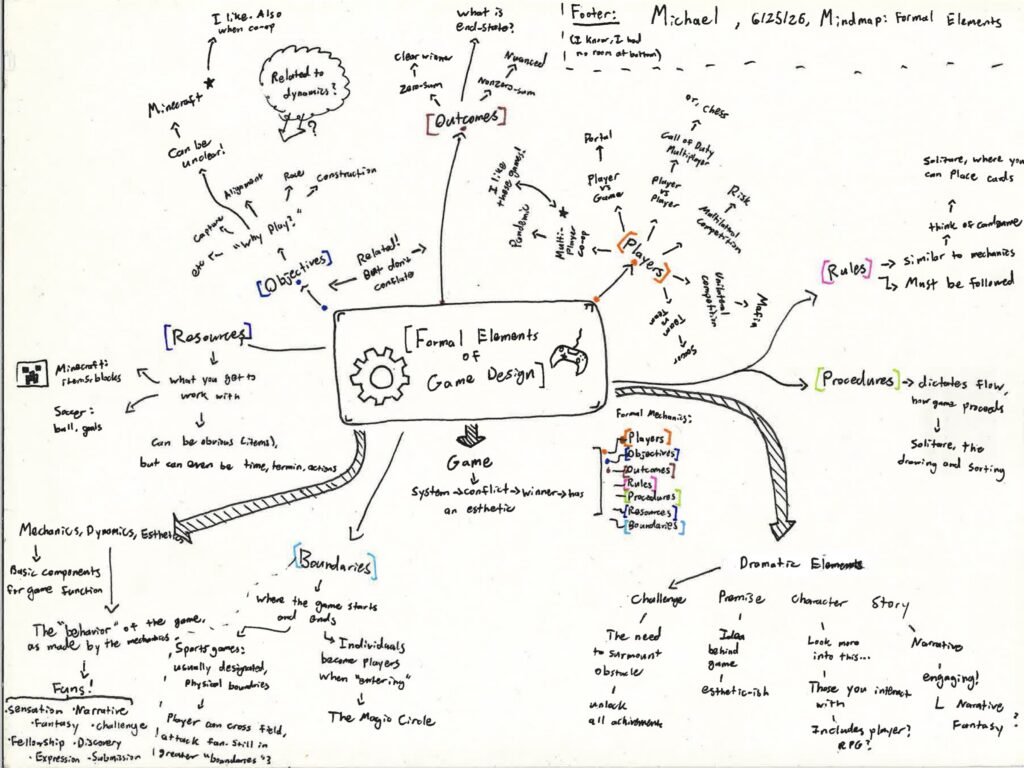 Footer: Michael, 6/25/26, Mindmap: Formal Elements
(I know, I had
no room at bottom)
I like. Also
when co-op
Minecraft
Can be
unclear!
Related to
dynamics?
?
Alignment
Race
Construction
Capture
etc
"Why Play?"
[Objectives]
Related!
But don't
conflate
What is
end-state?
Clear winner
Zero-sum
Nuanced
Nonzero-sum
[Outcomes]
I like
these games!
Pandemic
Multi-
Player
co-op
Portal
Player
vs
Game
or, chess
Call of Duty
Multiplayer
Player
vs
Player
Risk
Multilateral
Competition
[Players]
Unilateral
competition
Mafia
Team
vs
Team
Soccer
Solitare, where you
can place cards
think of cardgame
[Rules]
similar to mechanics
Must be followed
[Procedures]
dictates flow,
how game proceeds
Solitare, the
drawing and sorting
[Resources]
what you get to
work with
Minecraft:
items, blocks
Soccer:
ball, goals
Can be obvious (items),
but can even be time, terrain, actions
[Formal Elements
of
Game Design]
Game
System → conflict → winner → has
an esthetic
Formal Mechanics:
[Players]
[Objectives]
[Outcomes]
[Rules]
[Procedures]
[Resources]
[Boundaries]
Mechanics, Dynamics, Esthetics
Basic components
for game function
The "behavior" of the game,
as made by the mechanics
Funs!
•Sensation •Narrative
•Fantasy •Challenge
•Fellowship •Discovery
•Expression •Submission
[Boundaries]
where the game starts
and ends
Sports games:
usually designated,
physical boundries
Player can cross field,
attack fan. Still in
greater "boundaries"?
Individuals
become players
when "entering"
The Magic Circle
Dramatic Elements
Challenge
Premise
Character
Story
The need
to surmount
obstacle
unlock
all achievments
Idea
behind
game
esthetic-ish
Look more
into this...
Those you interact
with
Includes player?
RPG?
Narrative
engaging!
Narrative
Fantasy?